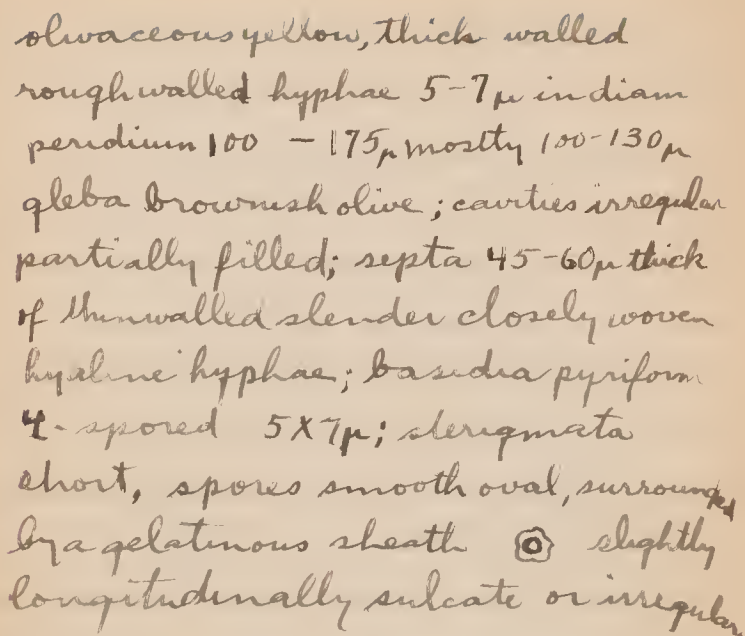 olivaceous yellow, thick walled
rough walled hyphae 5-7µ in diam
peridium 100 - 175µ mostly 100-130µ
gleba brownish olive; cavities irregular
partially filled; septa 45-60µ thick
of thinwalled slender closely woven
hyaline hyphae; basidia pyriform
4-spored 5X7µ; sterigmata
short, spores smooth oval, surrounded
by a gelatinous sheath slightly
longitudinally sulcate or irregular